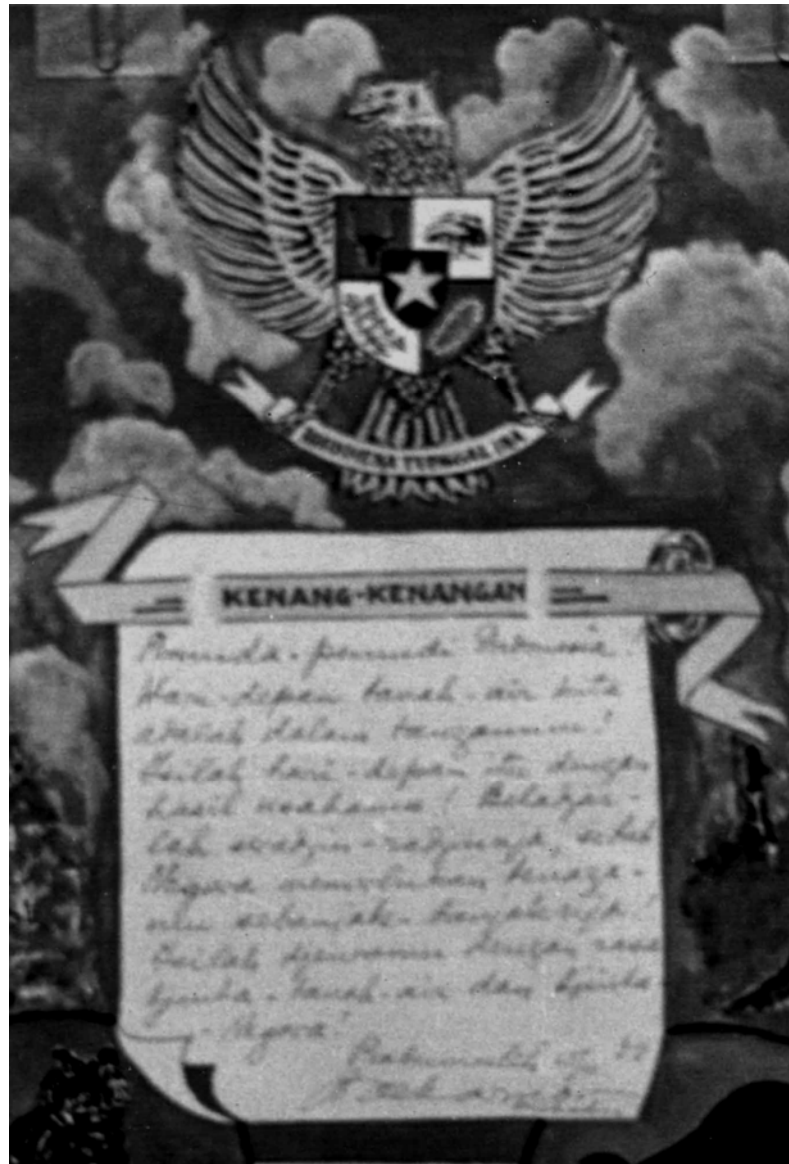 BHINNEKA TUNGGAL IKA
KENANG-KENANGAN
Pemuda-pemudi Indonesia!
Hari-depan tanah-air kita
adalah dalam tanganmu!
Isilah hari-depan itu dengan
hasil usahamu! Beladjar-
lah radjin-radjinnja, sebab
Negara memerlukan tenaga-
mu sebanjak-banjaknja!
Isilah djiwamu dengan rasa
tjinta-tanah-air dan tjinta
-Negara!